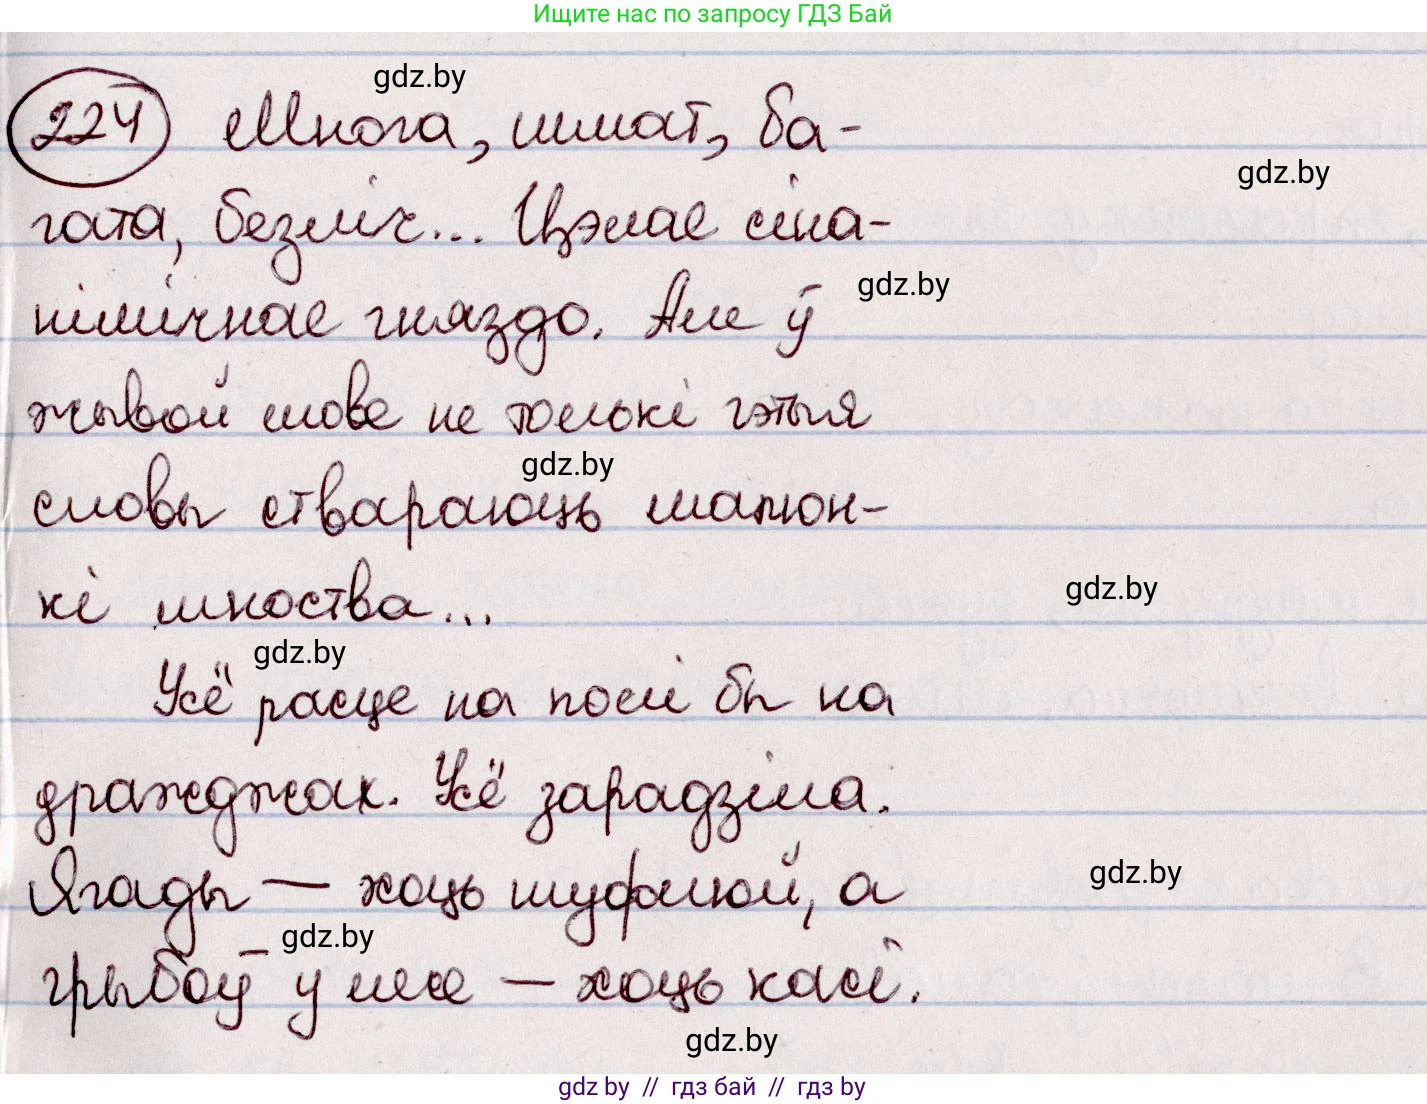 Ищите нас по запросу ГДЗ Бай
gdz.by
224 Многа, шмат, ба-
gdz.by
гата, безліч... Цэлае сіна-
gdz.by
німічнае гняздо. Але ў
жывой мове не толькі гэтыя
gdz.by
словы ствараюць малюн-
gdz.by
кі мноства...
gdz.by
Усё расце на полі бы на
дражджах. Усё зарадзіла.
gdz.by
Ягады — хоць шуфлюй, а
gdz.by
грыбоў у лесе — хоць касі.
gdz.by
gdz by // гдз бай // гдз by